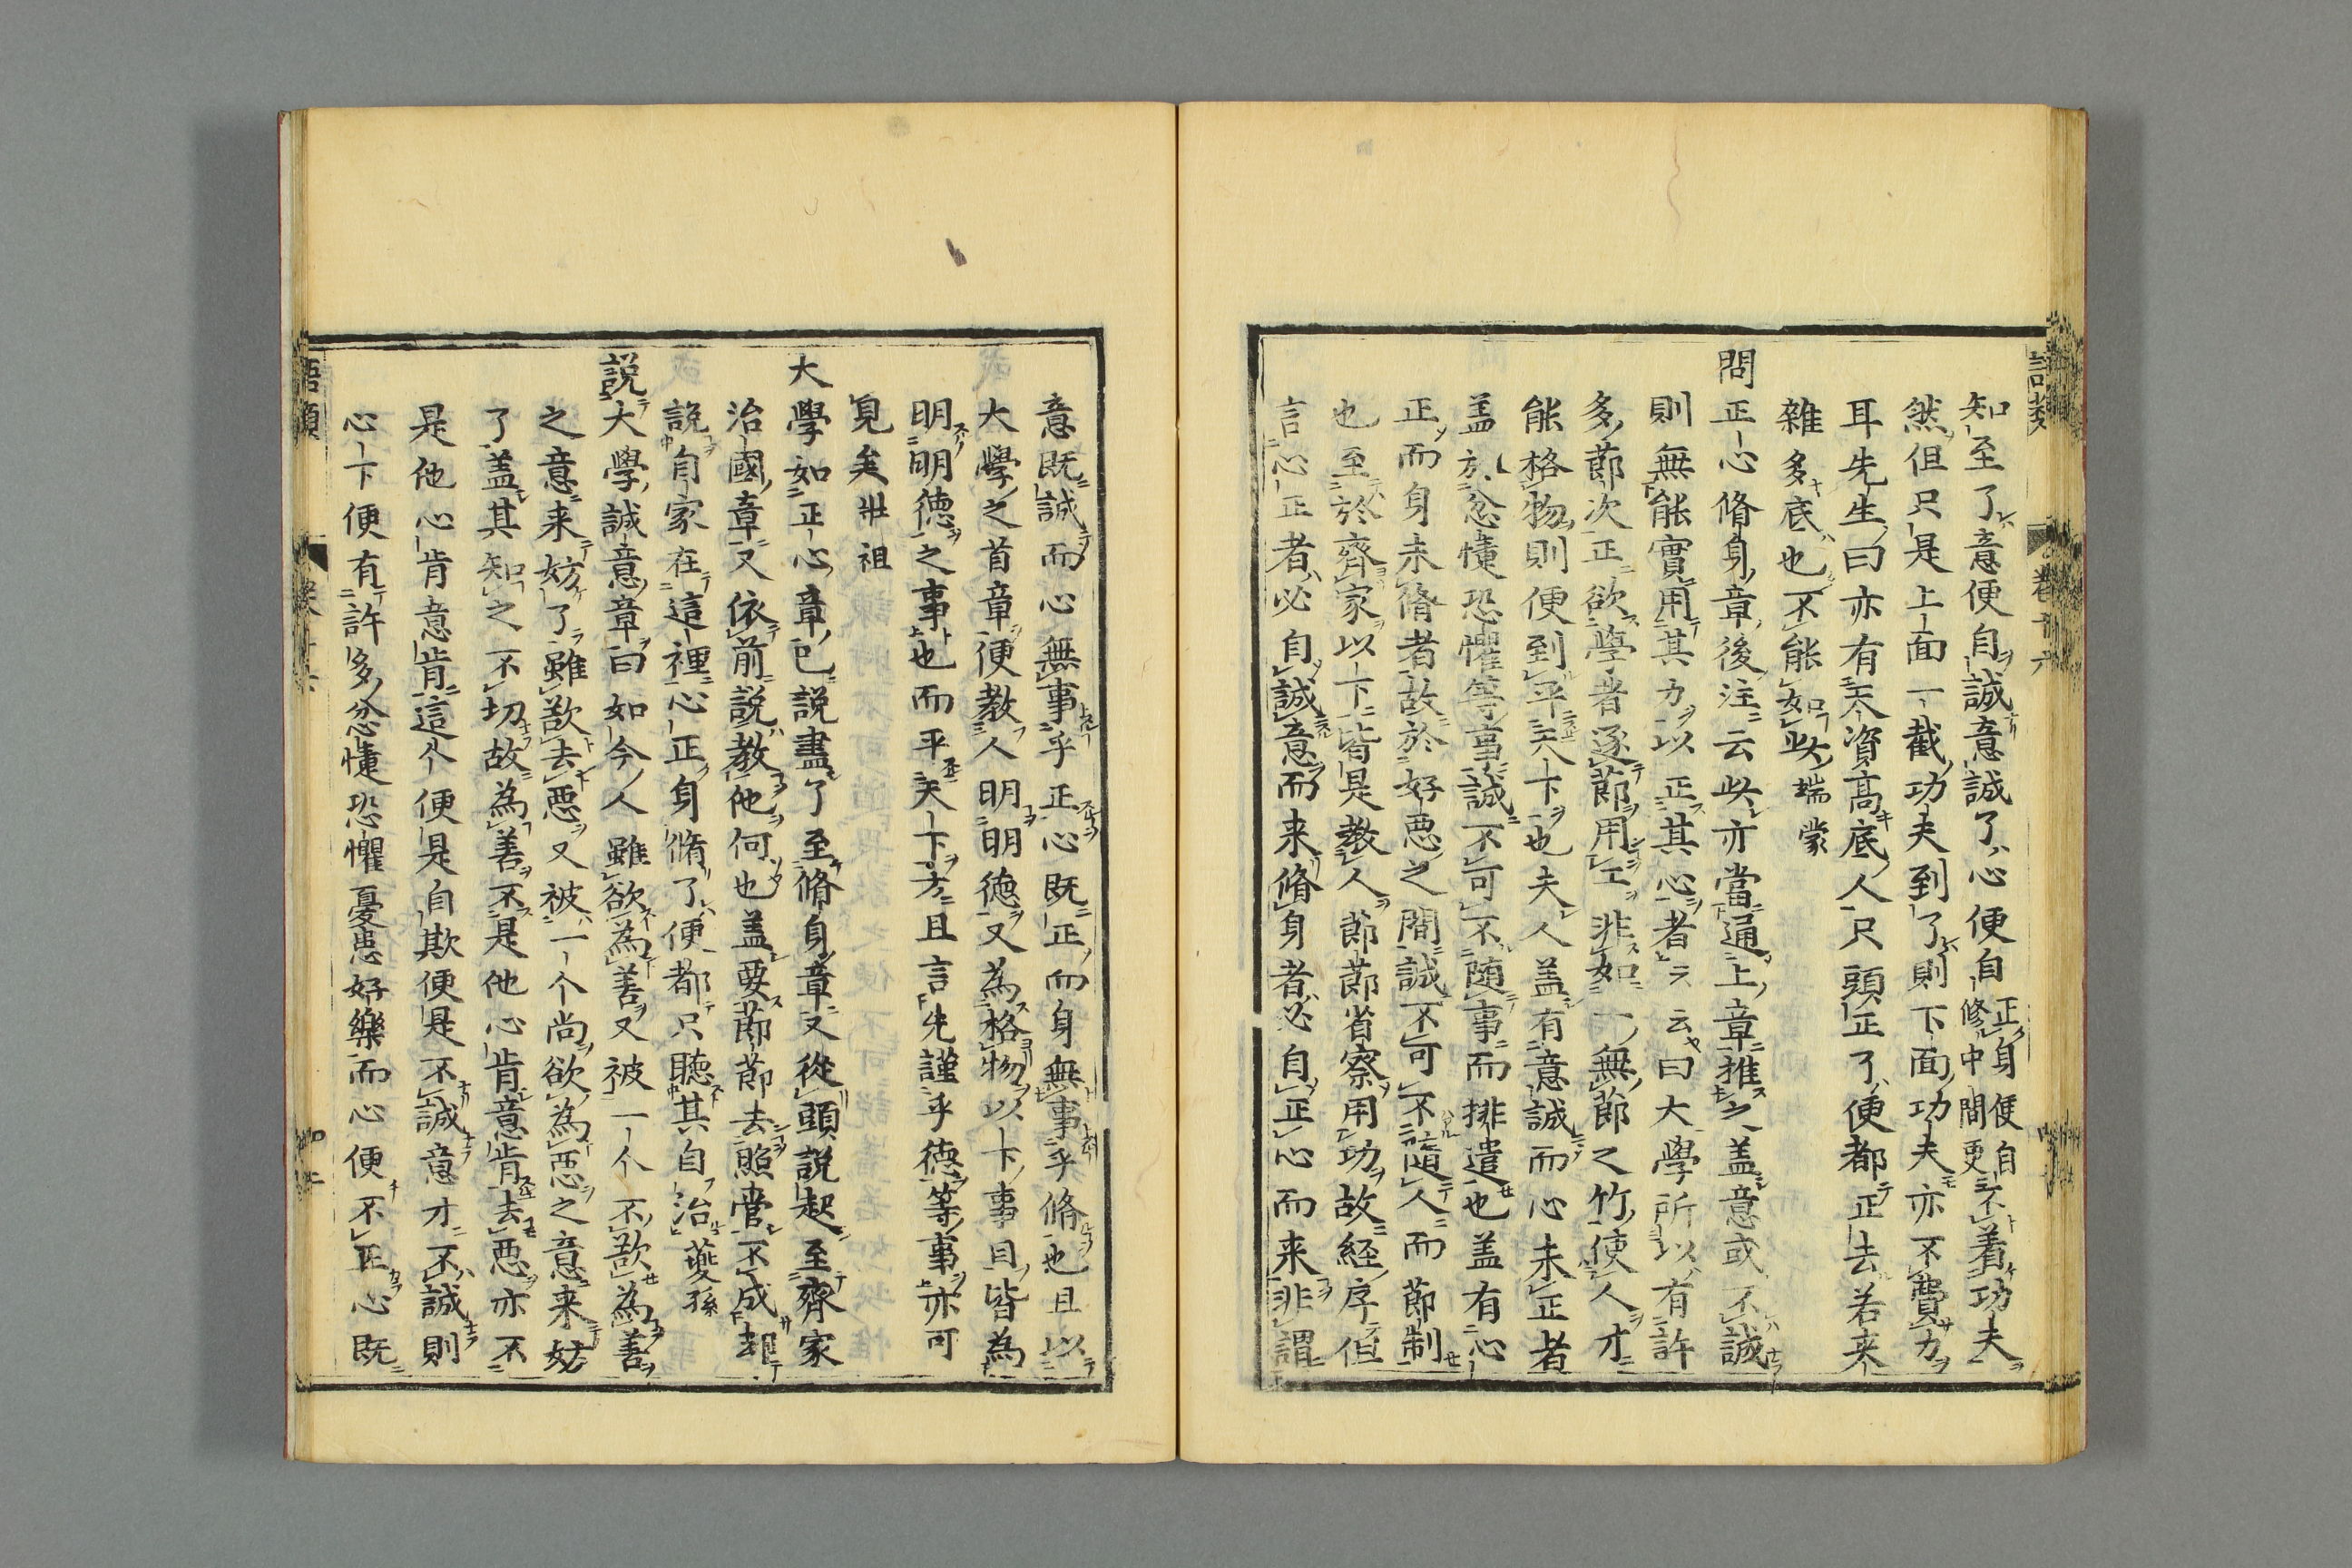 知至了意便自誠意誠了心便自正身便自
修中間更不着功夫
然但只是上面一截功夫到了則下面功夫亦不費力
耳先生曰亦有天資高底人只頭正了便都正去若來
雜多底也不能如此端蒙
問正心脩身章後注云此亦當通上章推之盖意或不誠
則無能實用其力以正其心者云云曰大學所以有許
多節次正欲學者逐節用工非如一無節之竹使人才
能格物則便到平天下也夫人盖有意誠而心未正者
盖於忿懥恐懼等事誠不可不隨事而排遣也盖有心
正而身未脩者故於好惡之間誠不可不隨人而節制
也至於齊家以下皆是教人節節省察用功故経序但
言心正者必自誠意而来脩身者必自正心而来非謂
意既誠而心無事乎正心既正而身無事乎脩也且以
大學之首章便教人明明德又為格物以下事目皆為
明明德之事也而平天下方且言先謹乎德等事亦可
見矣壯祖
大學如正心章已說盡了至脩身章又從頭說起至齊家
治國章又依前說教他何也盖要節節去照管不成却
說自家在這裡心正身脩了便都只聽其自治夔孫
說大學誠意章曰如今人雖欲為善又被一个不欲為善
之意来妨了雖欲去惡又被一个尚欲為惡之意来妨
了盖其知之不切故為善不是他心肯意肯去惡亦不
是他心肯意肯這个便是自欺便是不誠意才不誠則
心下便有許多忿懥恐懼憂患好樂而心便不正心既
語類
卷十六